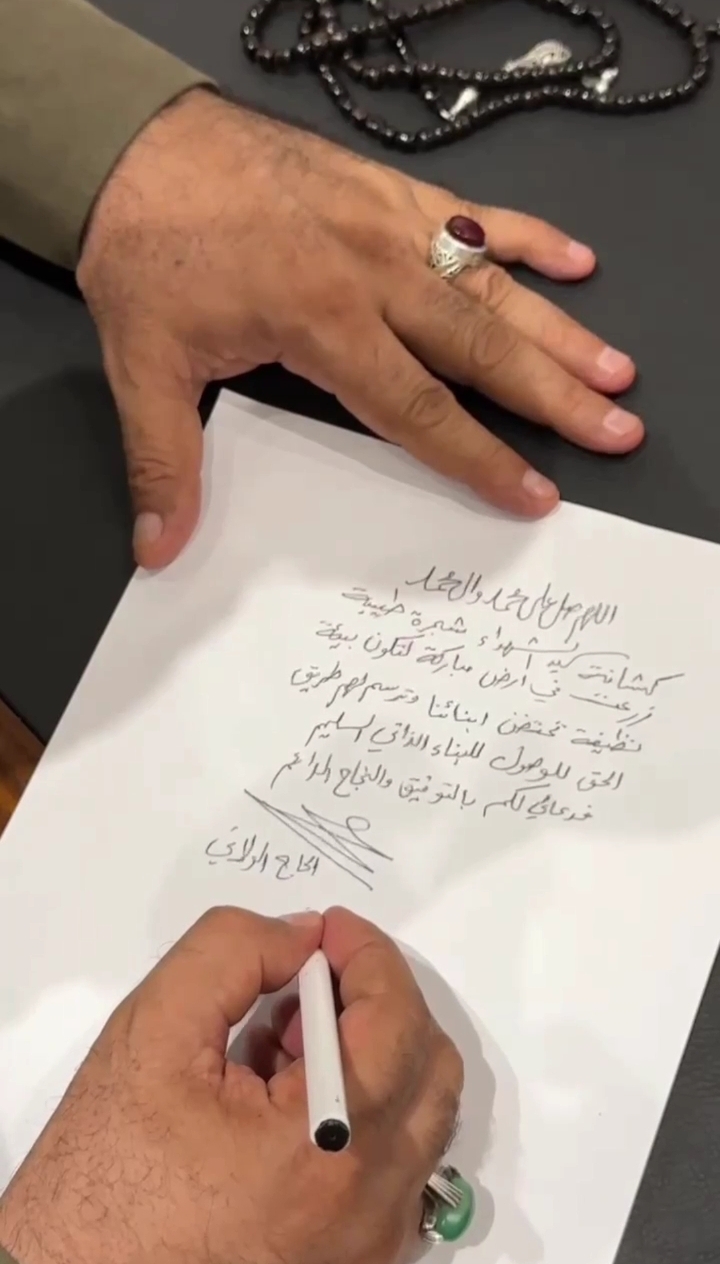 اللهم صل على محمد وال محمد
كشافة سيد الشهداء شجرة طيبة
زرعت في ارض مباركة لتكون بيئة
نظيفة تحتضن ابنائنا وترسم لهم طريق
الحق للوصول للبناء الذاتي السليم
فدعائي لكم بالتوفيق والنجاح الدائم
الحاج الولائي